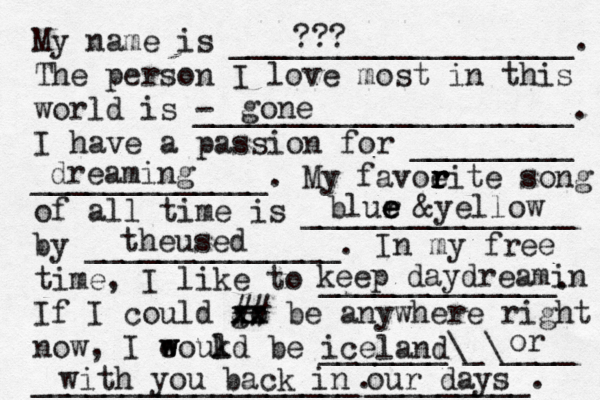 My name is ???.
The person I love most in this
world is - gone.
I have a passion for
dreaming. My favorite song
of all time is blue &yellow
by theused. In my free
time, I like to keep daydreamin.
If I could ## be anywhere right
now, I would be iceland\_\or
with you back in.our days.